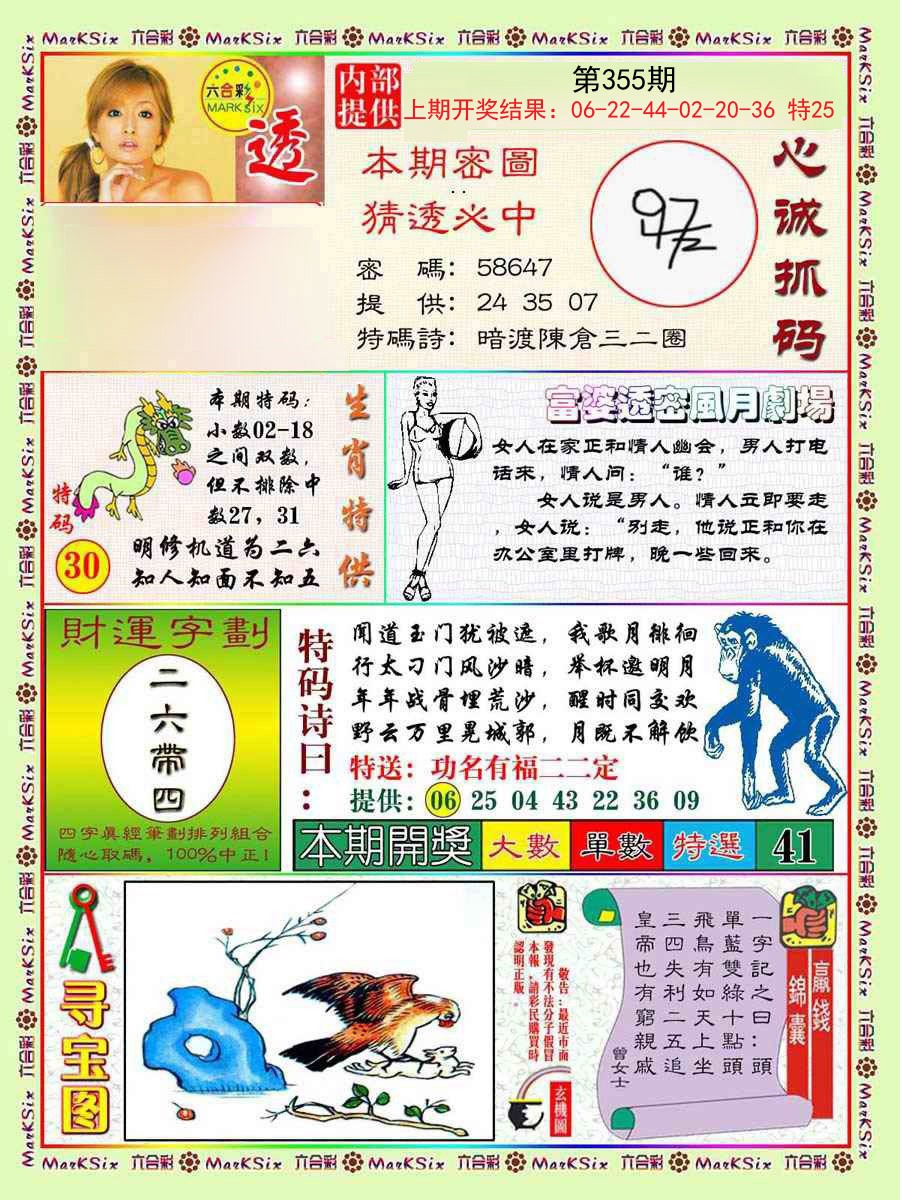 MarKSix 六合彩 MarKSix 六合彩 MarKSix 六合彩 MarKSix 六合彩 MarKSix 六合彩
六合彩
MARK six
透
内部
提供
第355期
上期开奖结果：06-22-44-02-20-36 特25
本期密圖
猜透必中
密 碼：58647
提 供：24 35 07
特碼詩：暗渡陳倉三二圈
心诚抓码
本期特码：
小数02-18
之间双数，
但不排除中
数27，31
明修机道为二六
知人知面不知五
特码
30
生肖特供
富婆透密風月劇場
女人在家正和情人幽会，男人打电
话来，情人问：“谁？”
女人说是男人。情人立即要走
，女人说：“别走，他说正和你在
办公室里打牌，晚一些回来。
財運字劃
二六帶四
四字真經筆劃排列組合
隨心取碼，100%中正！
特码诗曰：
闻道玉门犹被遮，我歌月徘徊
行太刁门风沙暗，举杯邀明月
年年战骨埋荒沙，醒时同交欢
野云万里晃城郭，月既不解饮
特送：功名有福二二定
提供：06 25 04 43 22 36 09
本期開獎 大數 單數 特選 41
寻宝图
敬告：最近市面
發現有不法分子假冒
本報，請彩民購買時
認明正版。
玄機圖
贏錢
錦囊
一字記之曰：頭
單藍雙綠十點頭
飛鳥有如天上坐
三四失利二五追
皇帝也有窮親戚
曾女士
MarKSix 六合彩 MarKSix 六合彩 MarKSix 六合彩 MarKSix 六合彩 MarKSix 六合彩